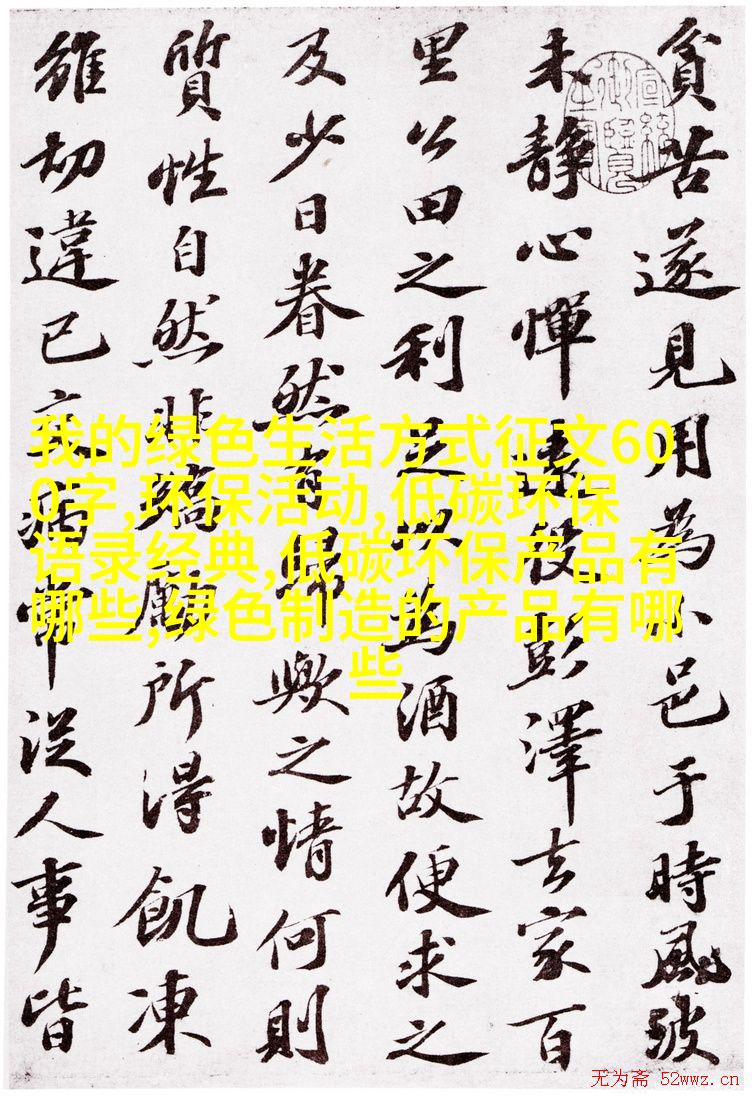 貧苦遂見用為小邑于時風波
未靜心憚遠役彭澤去家百
里公田之利足以為酒故便求之
及少日眷然有歸歟之情何則
質性自然非矯勵所得飢凍
雖切違己交病常從人事皆
我的绿色生活方式征文60
0字,环保活动,低碳环保
语录经典,低碳环保产品有
哪些,绿色制造的产品有哪
些
无为斋 52wwz.cn